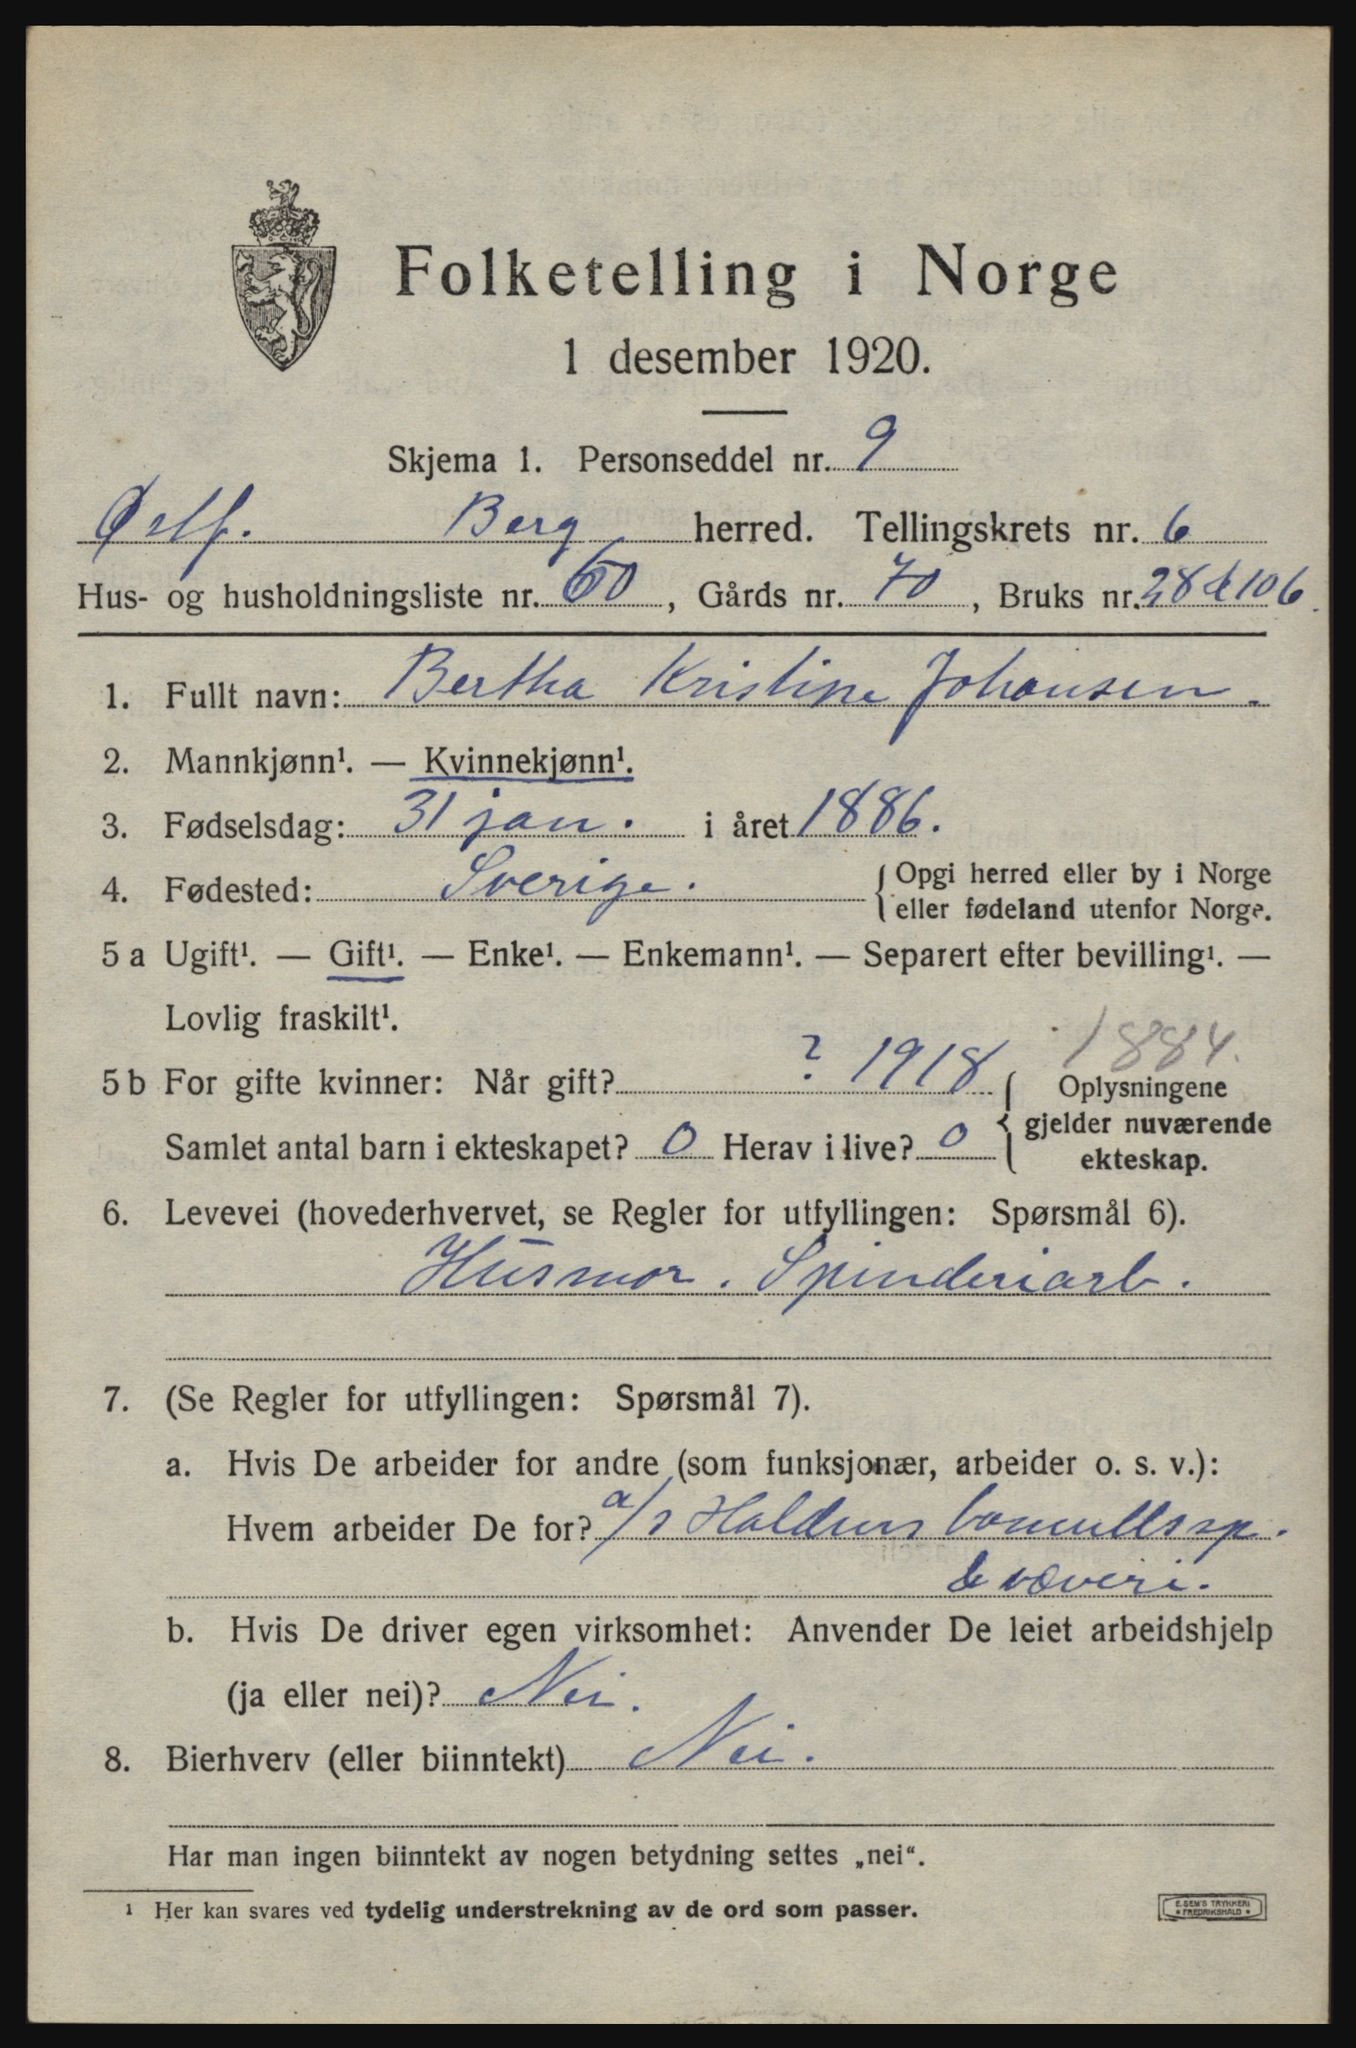 Folketelling i Norge
1 desember 1920.
Skjema 1. Personseddel nr. 9
Østf. Berg herred. Tellingskrets nr. 6
Hus- og husholdningsliste nr. 60, Gårds nr. 70, Bruks nr. 28 & 106
1. Fullt navn: Bertha Kristine Johansen.
2. Mannkjønn¹. — Kvinnekjønn¹.
3. Fødselsdag: 31 jan. i året 1886.
4. Fødested: Sverige. { Opgi herred eller by i Norge
eller fødeland utenfor Norge.
5 a Ugift¹. — Gift¹. — Enke¹. — Enkemann¹. — Separert efter bevilling¹. —
Lovlig fraskilt¹.
1884.
5 b For gifte kvinner: Når gift? ? 1918 { Oplysningene
gjelder nuværende
Samlet antal barn i ekteskapet? 0 Herav i live? 0 ekteskap.
6. Levevei (hovederhvervet, se Regler for utfyllingen: Spørsmål 6).
Husmor. Spinderiarb.
7. (Se Regler for utfyllingen: Spørsmål 7).
a. Hvis De arbeider for andre (som funksjonær, arbeider o. s. v.):
Hvem arbeider De for? a/s Haldens bomullssp.
& væveri.
b. Hvis De driver egen virksomhet: Anvender De leiet arbeidshjelp
(ja eller nei)? Nei.
8. Bierhverv (eller biinntekt) Nei.
Har man ingen biinntekt av nogen betydning settes „nei“.
¹ Her kan svares ved tydelig understrekning av de ord som passer.
E. SEM'S TRYKKERI
* FREDRIKSHALD *